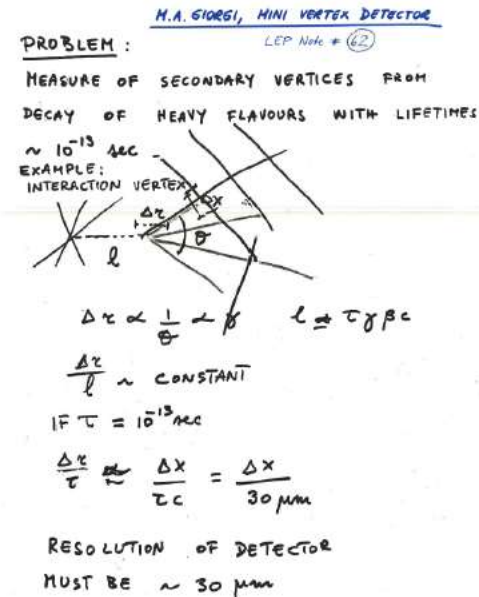 M.A. GIORGI, MINI VERTEX DETECTOR
LEP Note # 62
PROBLEM :
MEASURE OF SECONDARY VERTICES FROM
DECAY OF HEAVY FLAVOURS WITH LIFETIMES
~ 10⁻¹³ sec
EXAMPLE:
INTERACTION VERTEX
Δx
Δr
θ
l
Δr ∝ 1/θ ∝ γ l ≃ τγβc
Δr/l ~ CONSTANT
IF τ = 10⁻¹³ sec
Δτ/τ ≈ Δx/τc = Δx/30 μm
RESOLUTION OF DETECTOR
MUST BE ~ 30 μm